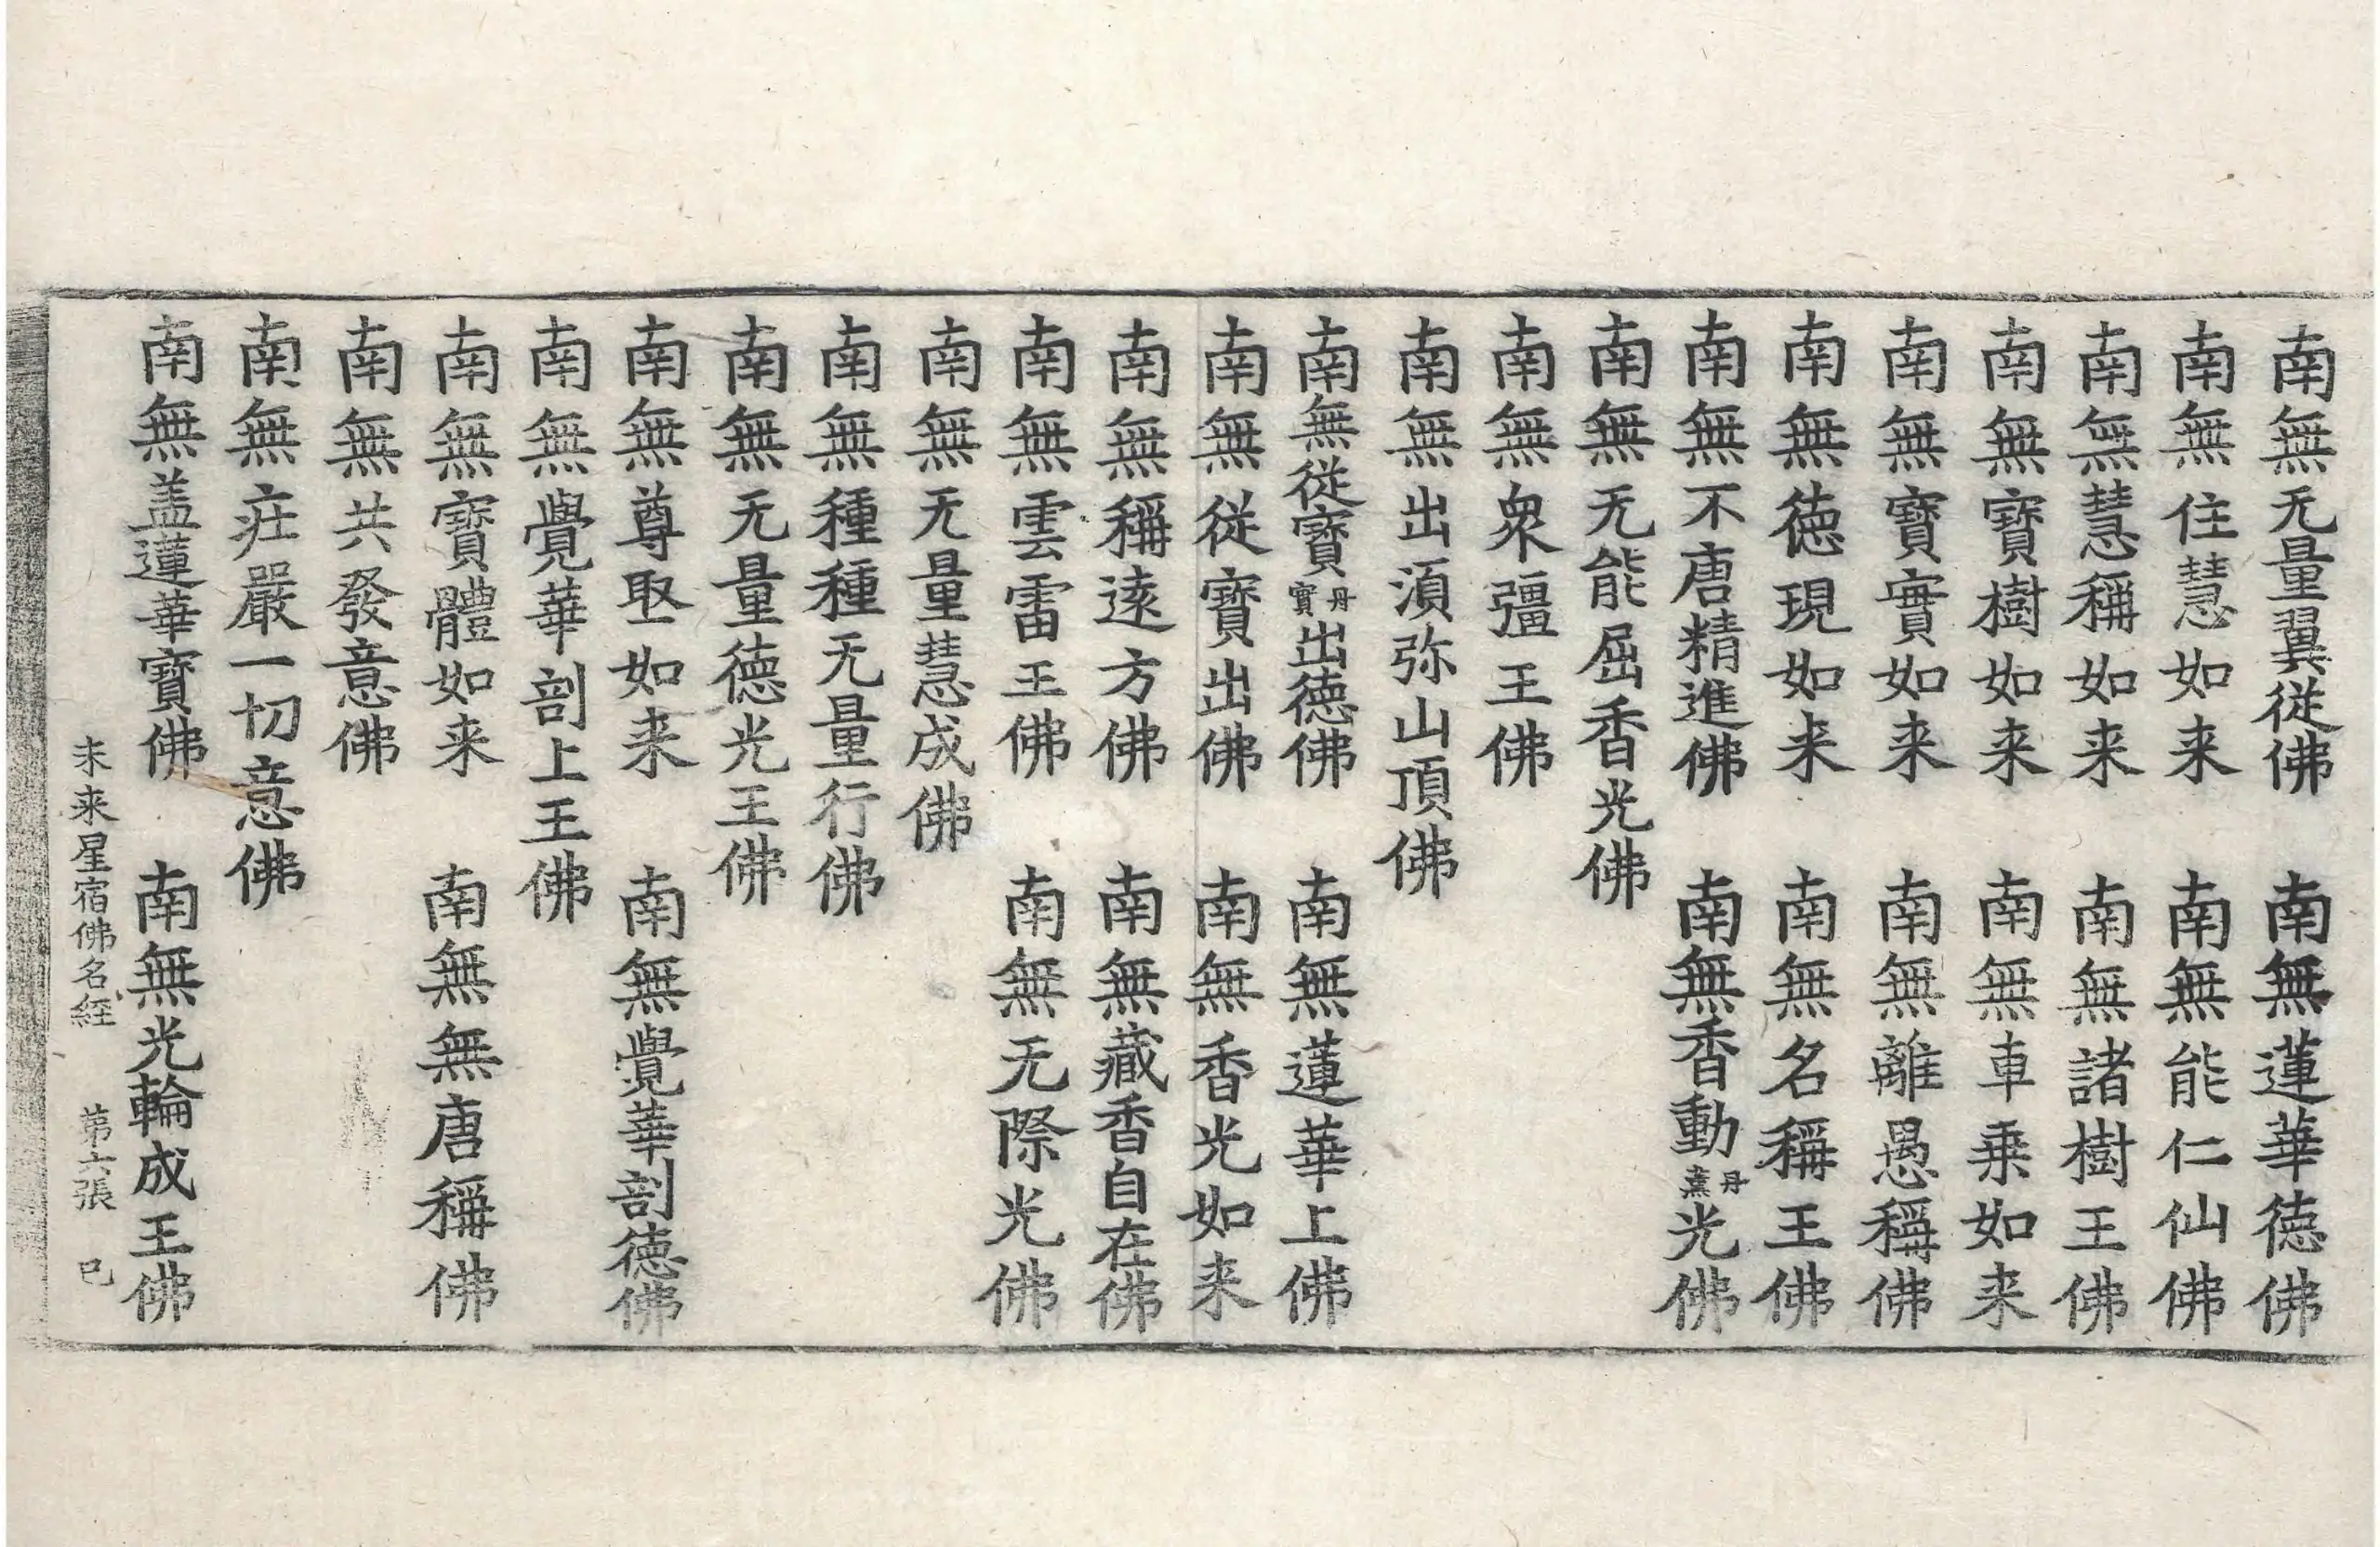 南無无量翼從佛　南無蓮華德佛
南無住慧如来　南無能仁仙佛
南無慧稱如来　南無諸樹王佛
南無寶樹如来　南無車乗如来
南無寶實如来　南無離愚稱佛
南無德現如来　南無名稱王佛
南無不唐精進佛　南無香動丹熏光佛
南無无能屈香光佛
南無衆彊王佛
南無出湏弥山頂佛
南無從寶丹實出德佛　南無蓮華上佛
南無從寶出佛　南無香光如来
南無稱遠方佛　南無藏香自在佛
南無雲雷王佛　南無无際光佛
南無无量慧成佛
南無種種无量行佛
南無无量德光王佛
南無尊聚如来　南無覺華剖德佛
南無覺華剖上王佛
南無寶體如来　南無無唐稱佛
南無共發意佛
南無莊嚴一切意佛
南無盖蓮華寶佛　南無光輪成王佛
未来星宿佛名經　第六張　巳